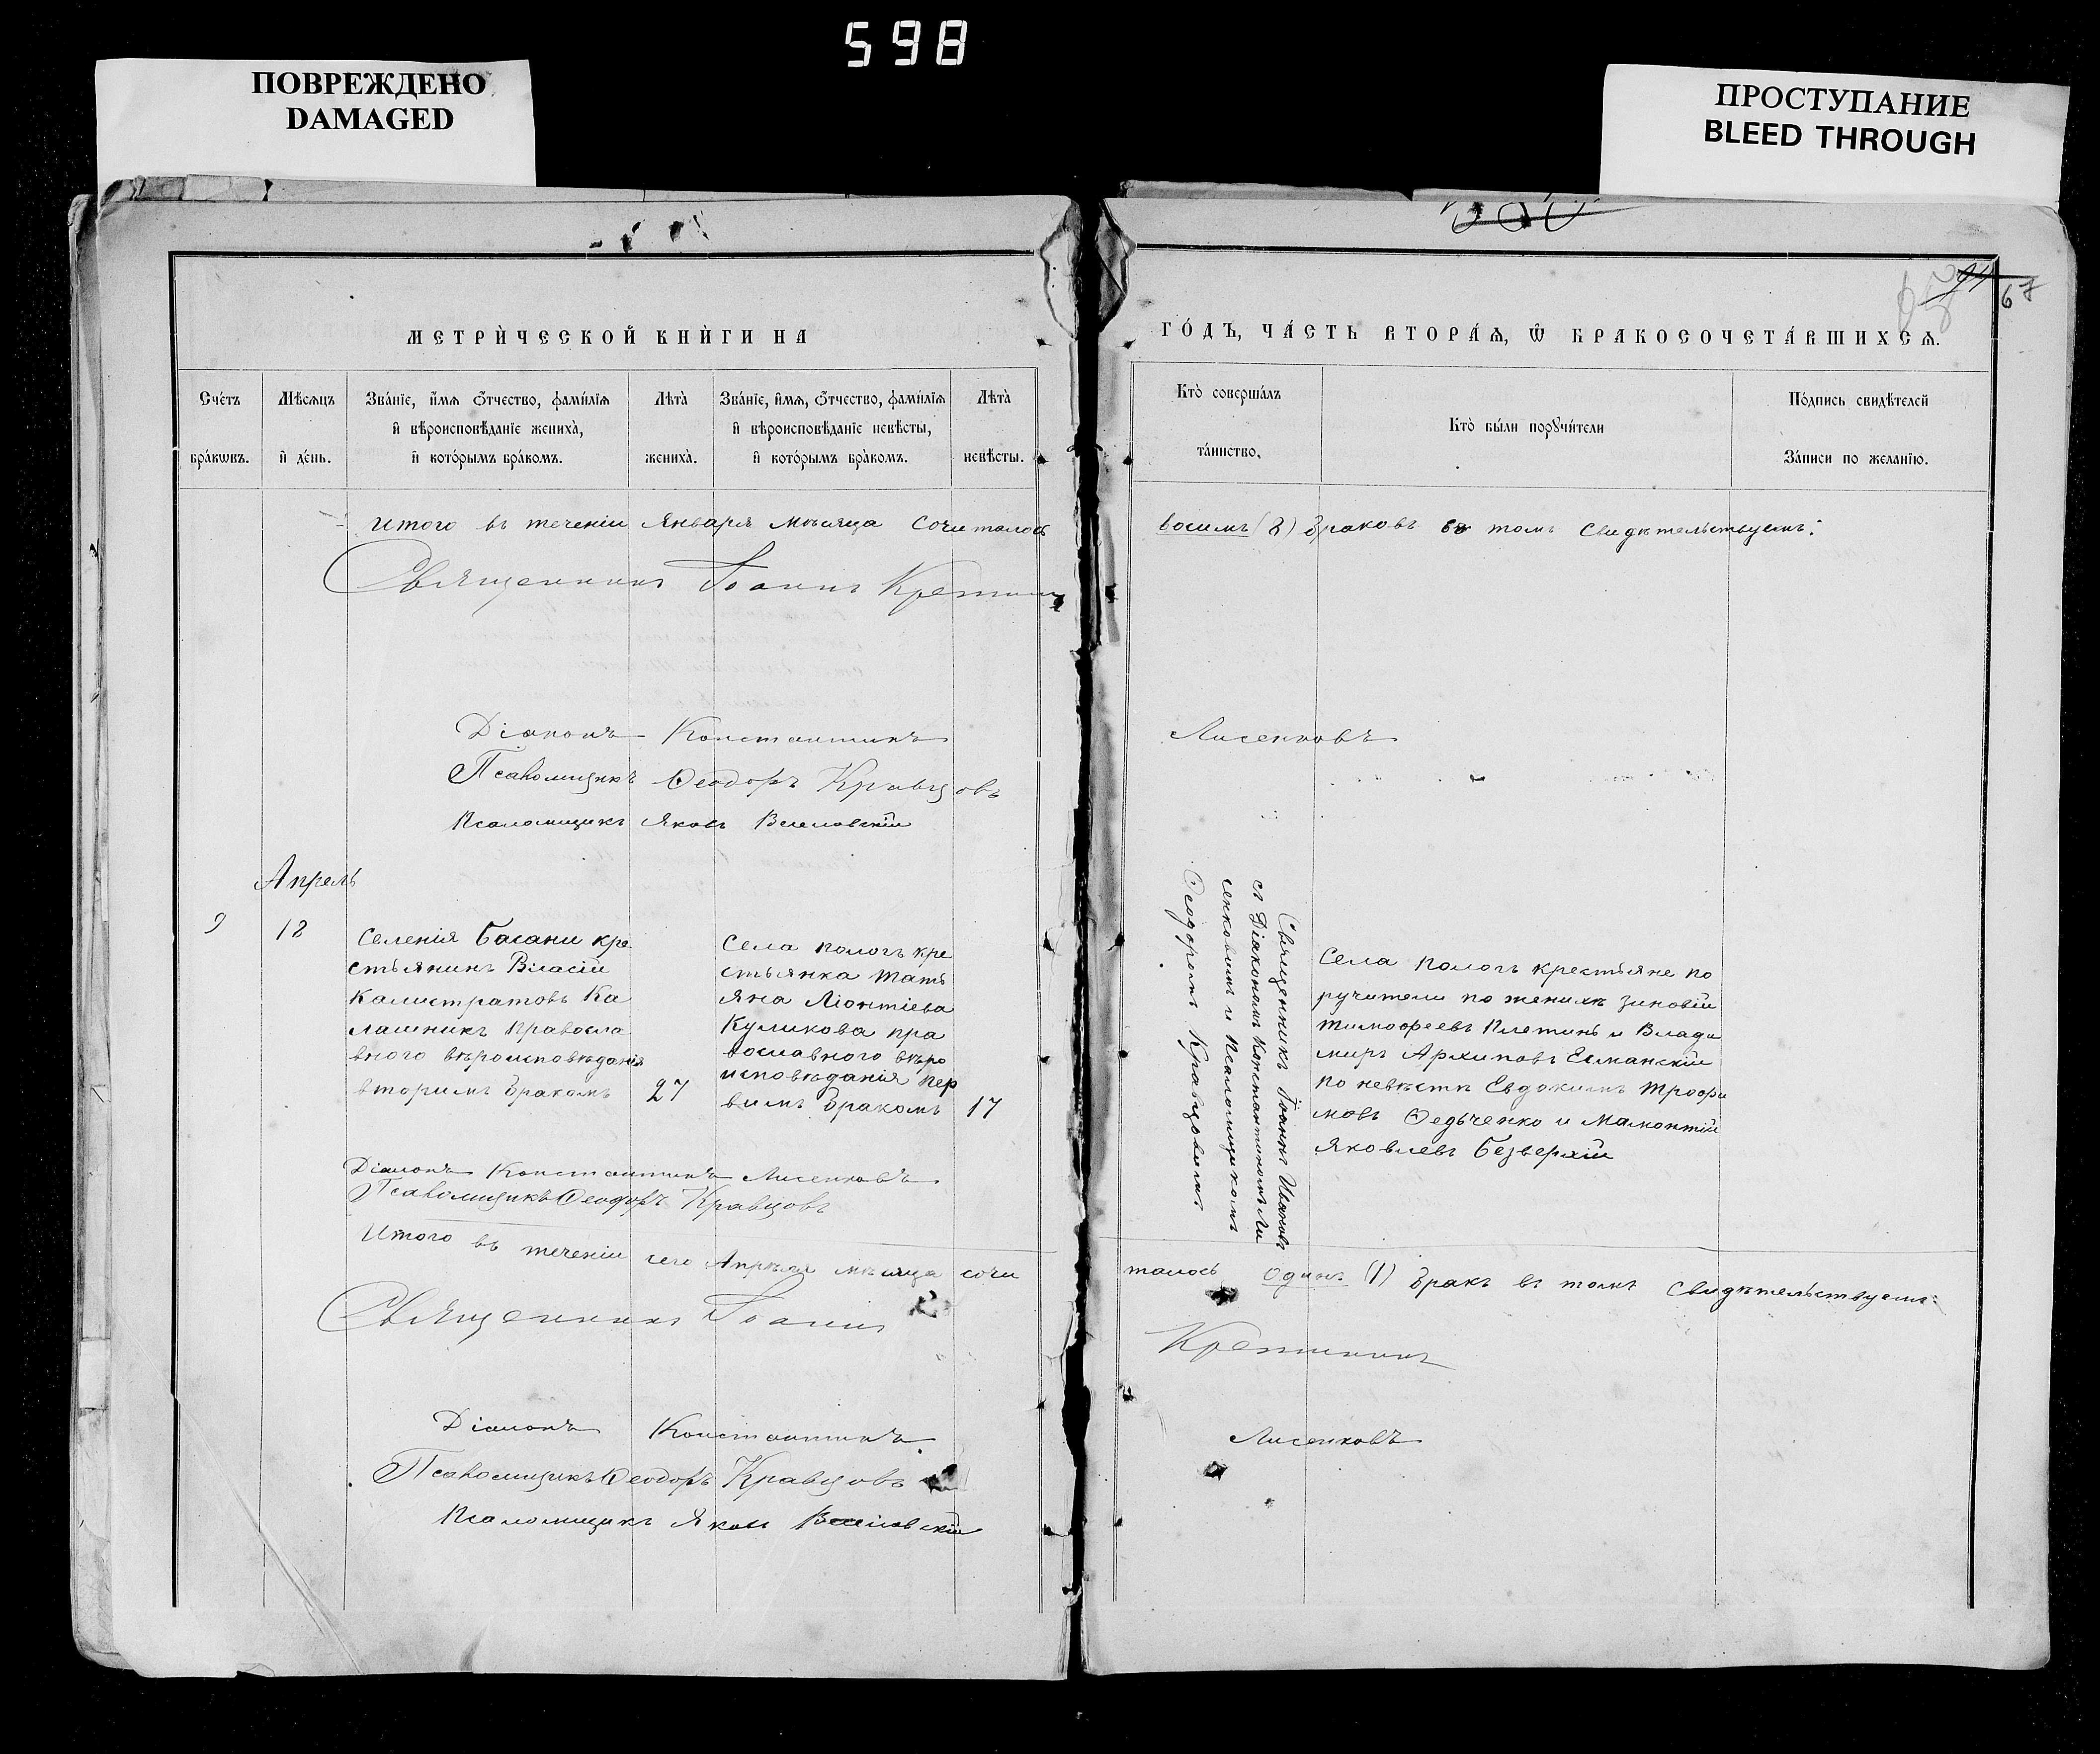 598
ПОВРЕЖДЕНО
DAMAGED
ПРОСТУПАНИЕ
BLEED THROUGH
67
МЕТРИ́ЧЕСКОЙ КНИ́ГИ НА
ГО́ДЪ, ЧА́СТЬ ВТОРА́Ѧ, Ѽ БРАКОСОЧЕТА́ВШИХСѦ.
Сче́тъ бра́кѡвъ.
Мѣ́сѧцъ и҆ де́нь.
Зва́нїе, и҆́мѧ ѻ҆́тчество, фамилїѧ
и҆ вѣроисповѣданїе жениха̀,
и҆ кото́рымъ бра́комъ.
Лѣта̀ жениха̀.
Зва́нїе, и҆́мѧ, ѻ҆́тчество, фамилїѧ
и҆ вѣроисповѣданїе невѣсты,
и҆ кото́рымъ бра́комъ.
Лѣта̀ невѣсты.
Кто̀ соверша́лъ
та́инство.
Кто̀ бы́ли порꙋчи́тели
По́дпись свидѣтелей
За́писи по желанїю.
Итого въ теченіи Января мѣсяца сочиталось
восимъ (8) браковъ въ томъ свидѣтельствуемъ:
Священникъ Іоаннъ
Діаконъ Константинъ
Лисенковъ
Псаломщикъ Ѳеодоръ Кравцовъ
Псаломщикъ Яковъ
Апрель
9
18
Селенія Басани кре
стьянинъ Власій
Калистратовъ Ка
лашникъ Правосла
вного вѣроисповѣданія
вторимъ бракомъ
27
Села Пологъ кре
стьянка Тать
яна Ліонтіева
Куликова пра
вославного вѣро
исповѣданія пер
вимъ бракомъ
17
Священникъ Іоаннъ Ивановъ
съ Діакономъ Константиномъ Ли
сенковимъ и Псаломщикомъ
Ѳеодоромъ Кравцовимъ
Села Пологъ крестьяне по
ручители по женихѣ Зиновій
Тимофеевъ Плетинь и Влади
миръ Архиповъ Еланскій
по невѣстѣ Евдокимъ Трофи
мовъ Федьченко и Мамонтій
Яковлевъ Безверхій
Діаконъ Константинъ Лисенковъ
Псаломщикъ Ѳеодоръ Кравцовъ
Итого въ теченіи сего Апрѣля мѣсяца сочи
талось одинъ (1) бракъ въ томъ свидѣтельствуемъ:
Священникъ Іоаннъ
Діаконъ Константинъ
Лисенковъ
Псаломщикъ Ѳеодоръ Кравцовъ
Псаломщикъ Яковъ